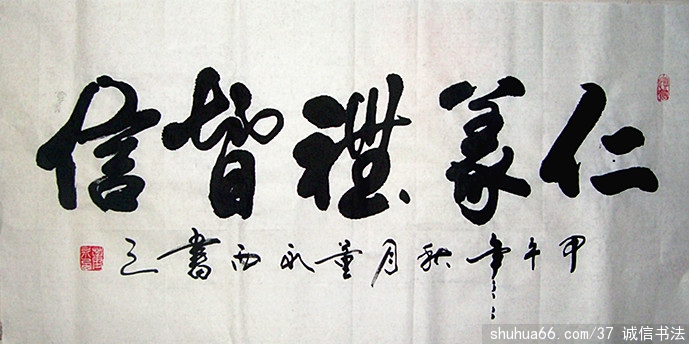 仁義禮智信
甲午年秋月董永西書之
shuhua66.com/37 诚信书法